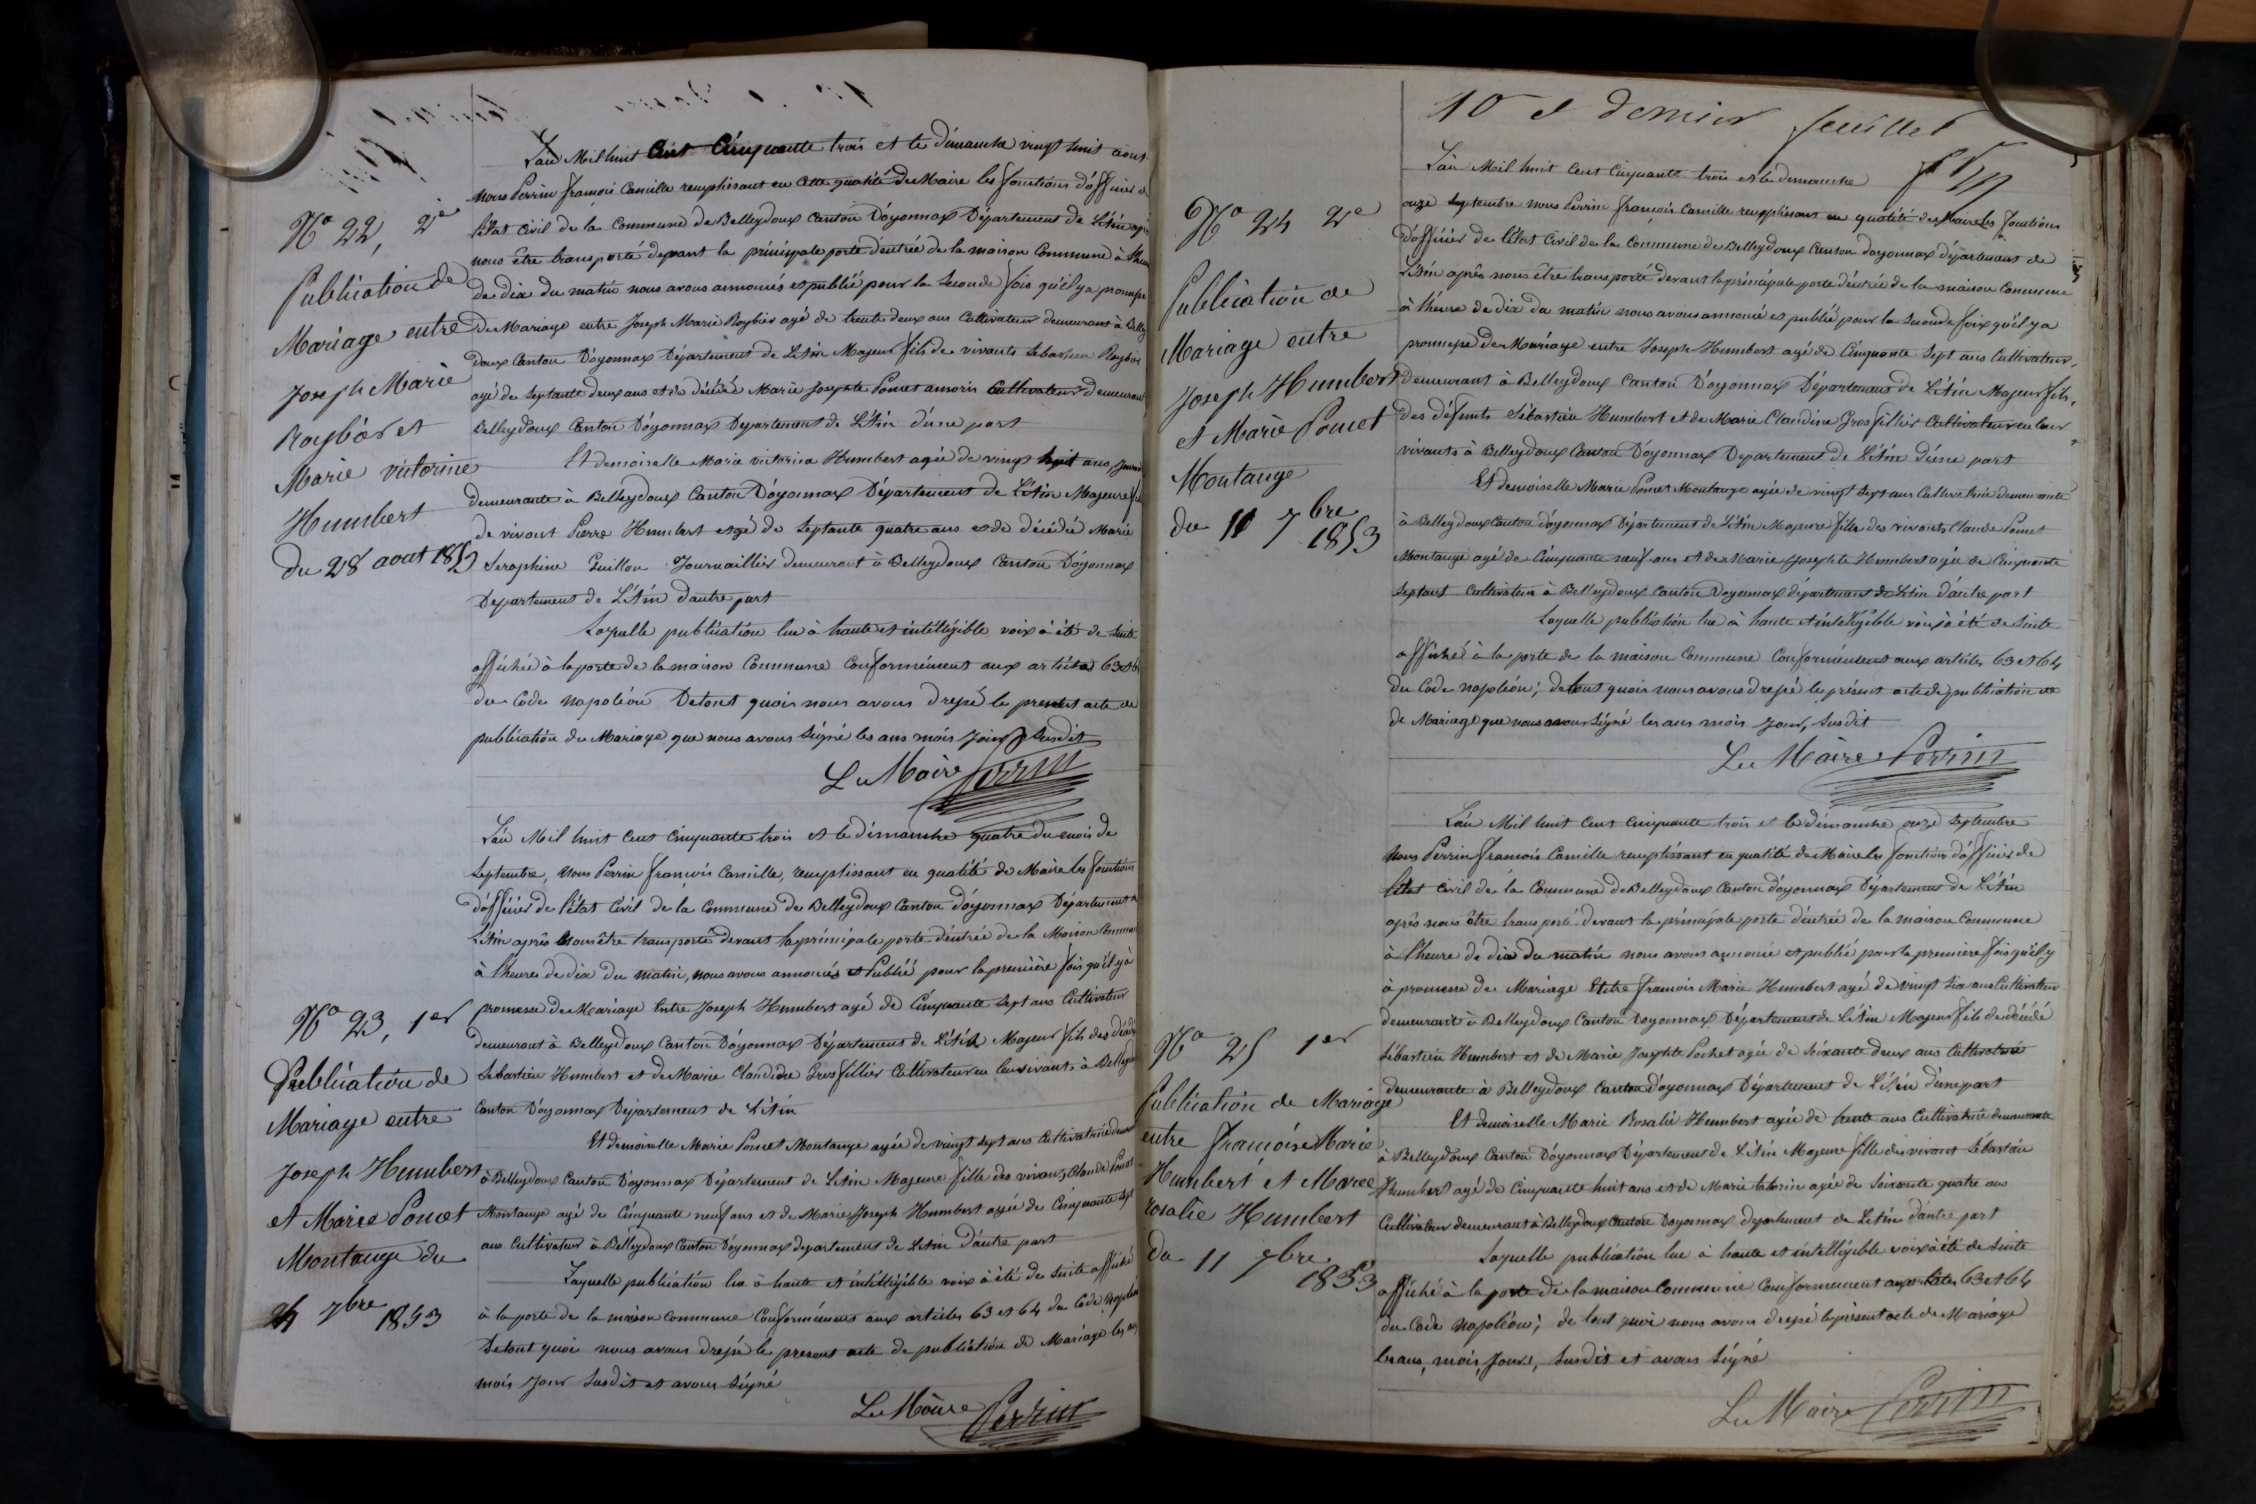 N° 22, 2e
Publication de
Mariage entre
Joseph Marie
Roybier et
Marie victorine
Humbert
du 28 aout 1853
L'an Mil huit Cent Cinquante trois et le dimanche vingt huit aout
nous Perrin françois Camille remplissant en cette qualité de Maire les fonctions d'officier de
l'état Civil de la Commune de Belleydoux Canton D'oyonnax Département de L'Ain après
nous être transporté devant la principale porte d'entrée de la maison Commune à l'heure
de dix du matin nous avons annoncés et publié pour la Seconde fois qu'il y a promesse
de Mariage entre Joseph Marie Roybier agé de trente deux ans Cultivateur demeurant à Belley
doux Canton D'oyonnax Département de L'Ain Majeur fils de vivants Sébastien Roybier
agé de Septante deux ans et de décédé Marie Josephte Poncet Cultivateur demeurant
Belleydoux Canton D'oyonnax Département de L'Ain d'une part
Et demoiselle Marie victorine Humbert agée de vingt huit ans,
demeurante à Belleydoux Canton D'oyonnax Département de L'Ain Majeure
de vivant Pierre Humbert agé de Septante quatre ans et de décédée Marie
Seraphine Guillon Journaillier demeurant à Belleydoux Canton D'oyonnax
Département de L'Ain d'autre part
Laquelle publication lue à haute et intelligible voix à été de Suite
affichée à la porte de la maison Commune Conformément aux articles 63 et 64
du Code Napoléon De tout quoi nous avons drepé le present acte de
publication de Mariage que nous avons Signé les ans mois Jour Susdit
Le Maire Perrin
N° 23, 1er
Publication de
Mariage entre
Joseph Humbert
et Marie Poncet
Montange du
4 7bre 1853
L'an Mil huit Cent Cinquante trois et le dimanche quatre du mois de
Septembre, Nous Perrin françois Camille, remplissant en qualité de Maire les fonctions
d'officier de l'état Civil de la Commune de Belleydoux Canton d'oyonnax Département de
L'Ain après nous être transporté devant la principale porte d'entrée de la Maison Commune
à l'heure de dix du matin, nous avons annoncés et Publié pour la première fois qu'il y à
promesse de Mariage Entre Joseph Humbert agé de Cinquante Sept ans Cultivateur
demeurant à Belleydoux Canton D'oyonnax Département de L'Ain Majeur fils des décédés
Sébastien Humbert et de Marie Claudine Grosfillier Cultivateur en leur vivants à Belleydoux
Canton D'oyonnax Département de L'Ain
Et demoiselle Marie Poncet Montange agée de vingt Sept ans Cultivatrice
à Belleydoux Canton D'oyonnax Département de L'Ain Majeure fille des vivants Claude Poncet
Montange agé de Cinquante neuf ans et de Marie Joseph Humbert agée de Cinquante Sept
ans Cultivateur à Belleydoux Canton D'oyonnax département de L'Ain D'autre part
Laquelle publication lue à haute et intelligible voix à été de Suite affiché
à la porte de la maison Commune Conformément aux articles 63 et 64 du Code Napoléon
De tout quoi nous avons drepé le present acte de publication de Mariage les ans
mois Jour Susdit et avons Signé
Le Maire Perrin
10 e dernier feuillet
N° 24 2e
Publication de
Mariage entre
Joseph Humbert
et Marie Poncet
Montange
du 11 7bre
1853
L'an Mil huit Cent Cinquante trois et le dimanche
onze Septembre nous Perrin françois Camille remplissant en qualité de Maire les fonctions
d'officier de l'état Civil de la Commune de Belleydoux Canton d'oyonnax département de
L'Ain après nous être transporté devant la principale porte d'entrée de la maison Commune
à l'heure de dix du matin nous avons annoncé et publié pour la Seconde foix qu'il y a
promepe de Mariage entre Joseph Humbert agé de Cinquante Sept ans Cultivateur,
demeurant à Belleydoux Canton D'oyonnax Département de L'Ain Majeur fils,
des défunts Sébastien Humbert et de Marie Claudine Grosfillier Cultivateur en leur
vivants à Belleydoux Canton D'oyonnax Département de L'Ain d'une part
Et demoiselle Marie Poncet Montange agée de vingt Sept ans Cultivatrice demeurante
à Belleydoux Canton d'oyonnax Département de L'Ain Majeure fille des vivants Claude Poncet
Montange agé de Cinquante neuf ans et de Marie Josephte Humbert agée de Cinquante
Septans Cultivateur à Belleydoux Canton D'oyonnax département de L'Ain d'autre part
Laquelle publication lue à haute et intelligible voix à été de Suite
affiché à la porte de la maison Commune Conformément aux articles 63 et 64
du Code Napoléon; de tout quoi nous avons drepé le présent acte de publication
de Mariage que nous avons Signé les ans mois Jour, Susdit
Le Maire Perrin
N° 25 1er
Publication de Mariage
entre françois Marie
Humbert et Marie
rosalie Humbert
du 11 7bre
1853
L'an Mil huit Cent Cinquante trois et le dimanche onze Septembre
Nous Perrin françois Camille remplissant en qualité de Maire les fonctions d'officier de
l'état Civil de la Commune de Belleydoux Canton d'oyonnax Département de L'Ain
après nous être transporté devant la principale porte d'entrée de la maison Commune
à l'heure de dix du matin nous avons annoncé et publié pour la premiere fois qu'il y
à promesse de Mariage Entre françois Marie Humbert agé de vingt Six ans Cultivateur
demeurant à Belleydoux Canton D'oyonnax Département de L'Ain Majeur fils de décédé
Sébastien Humbert et de Marie Josephte Pochet agée de Soixante deux ans Cultivatrice
demeurante à Belleydoux Canton D'oyonnax Département de L'Ain d'une part
Et demoiselle Marie Rosalie Humbert agée de trente ans Cultivatrice demeurante
à Belleydoux Canton D'oyonnax Département de L'Ain Majeure fille de vivant Sébastien
Humbert agé de Cinquante huit ans et de Marie agée de Soixante quatre ans
Cultivateur demeurant à Belleydoux Canton Doyonnax département de L'Ain d'autre part
Laquelle publication lue à haute et intelligible voix à été de Suite
affiché à la porte de la maison Commune Conformement aux articles 63 et 64
du Code Napoléon; de tout quoi nous avons drepé le présent acte de Mariage
les ans, mois, Jour, Susdit et avons Signé
Le Maire Perrin